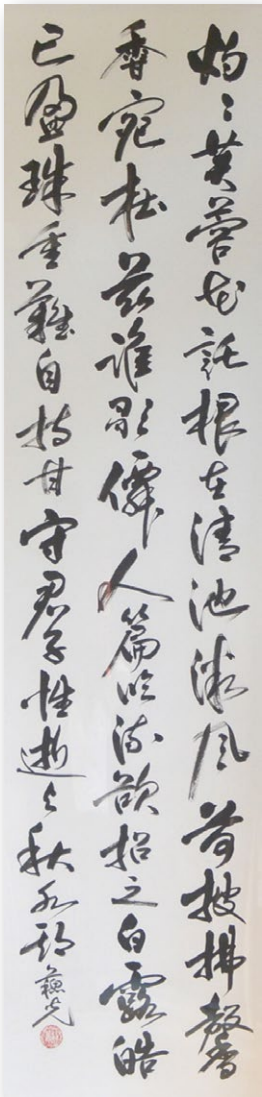 灼々芙蓉花託根在清池微風披拂馨
香宛在茲誰歌僊人篇臨流欲招之白露皓
已盈珠重難自持甘守君子性逝与秋水期